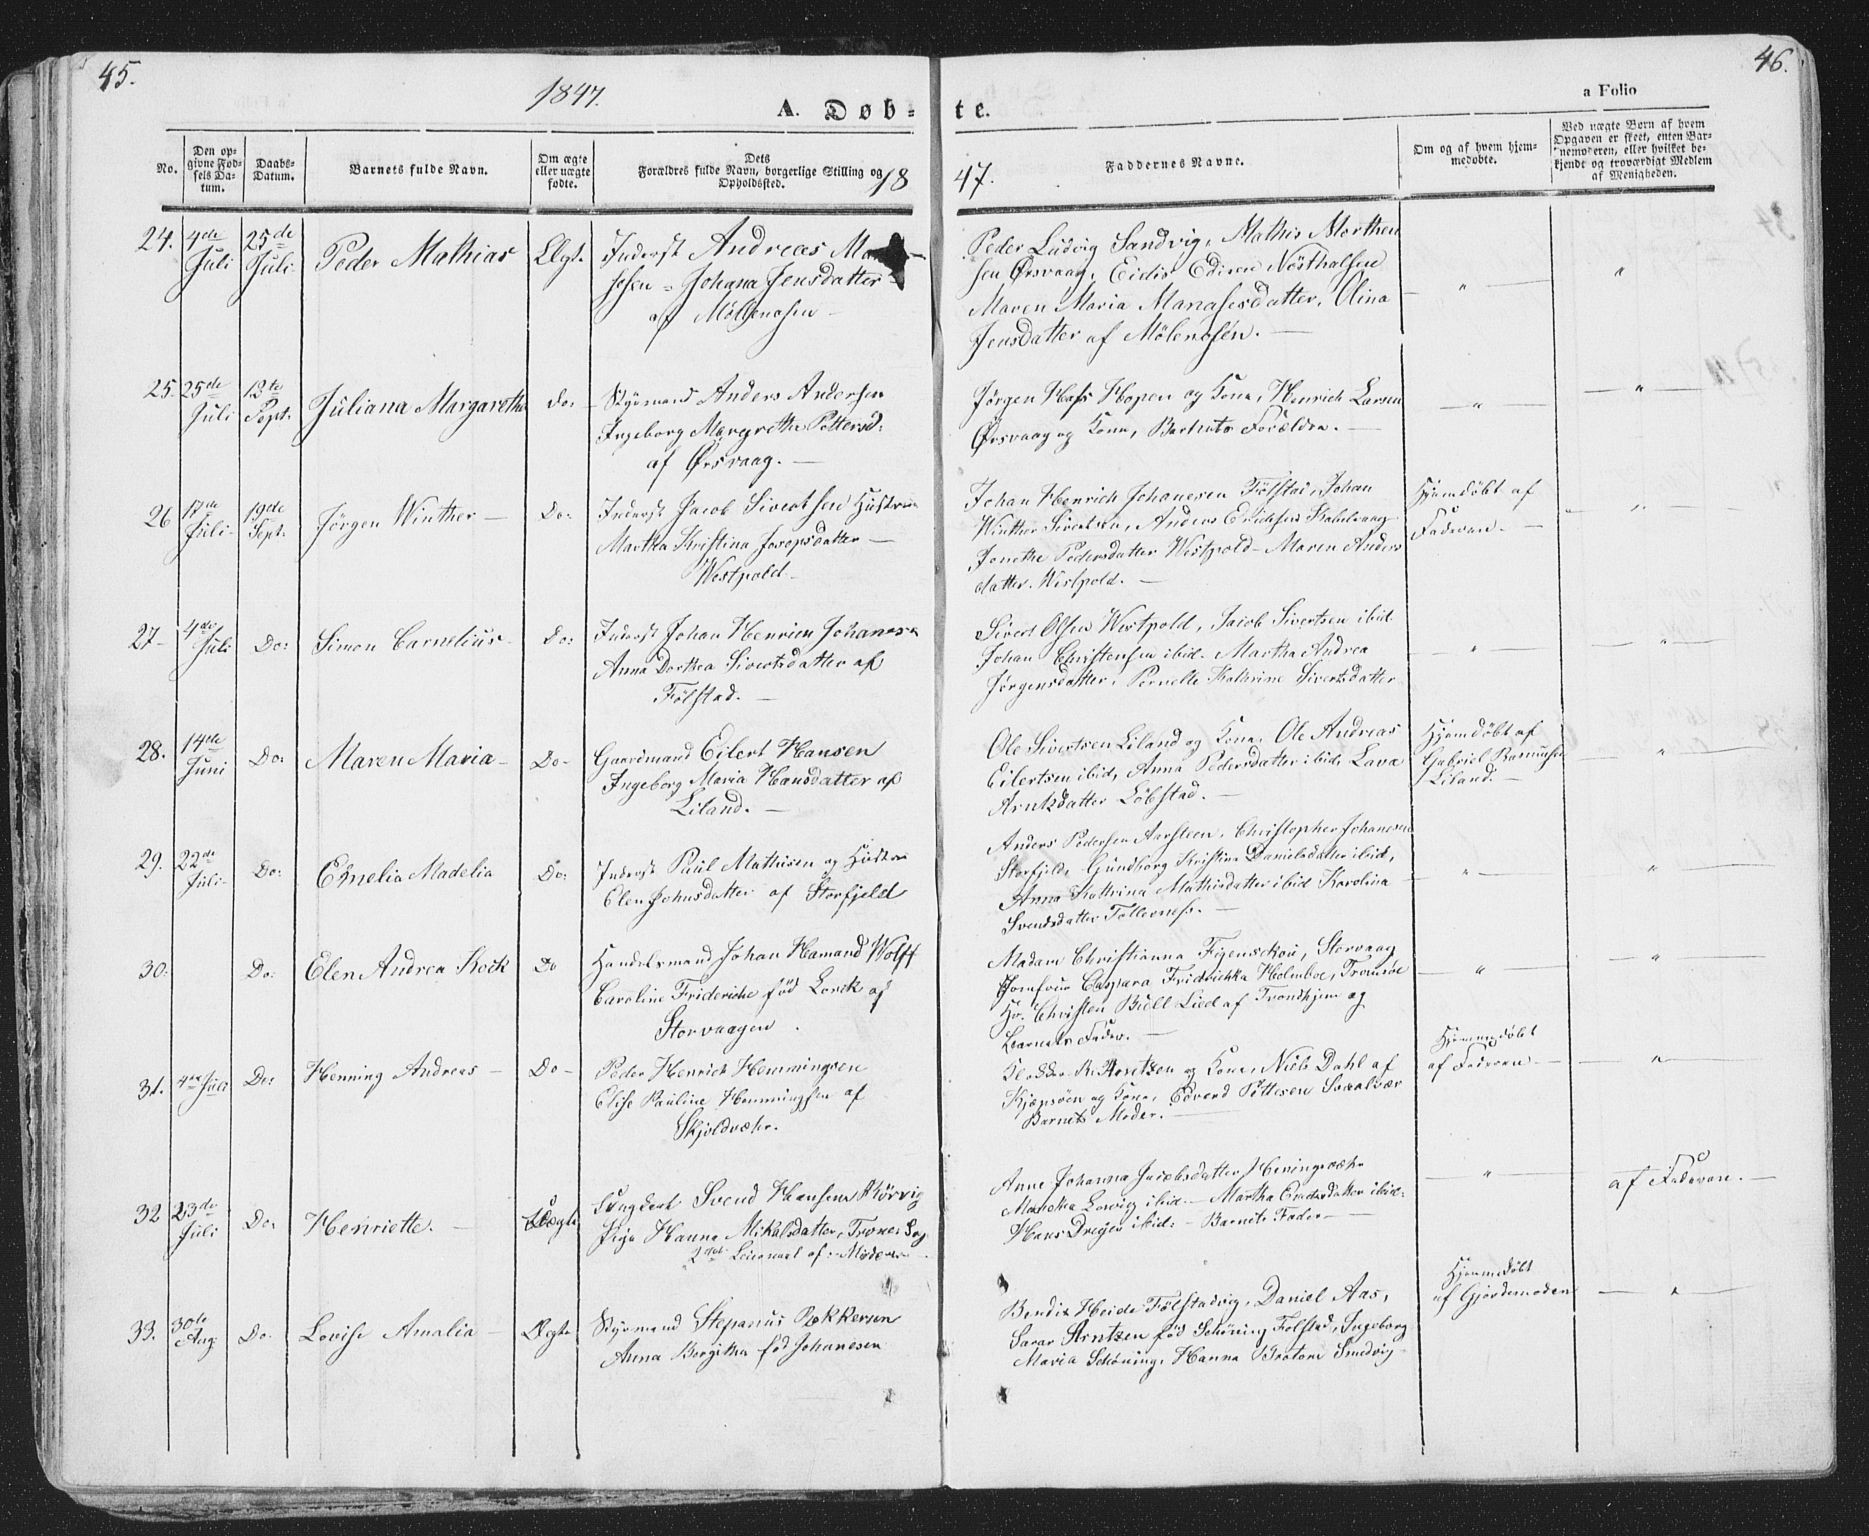 45.
1847.
A. Døb-
te.
a Folio
46.
No.
Den op-
givne Fød-
sels Da-
tum.
Daabs-
Datum.
Barnets fulde Navn.
Om ægte
eller uægte
fødte.
Dets
Forældres fulde Navn, borgerlige Stilling og
Opholdssted.
18
47.
Faddernes Navne.
Om og af hvem hjem-
medøbte.
Ved uægte Børn af hvem
Opgaven er skeet, enten Bar-
nemoderen, eller hvilket be-
kjendt og troværdigt Medlem
af Menigheden.
24. 4de Juli 25de Juli Peder Mathias Ægt.
Inderst Andreas
Johana Jensdatter
af
Peder Ludvig Sandvig, Mathis Morthen
sen Ørsvaag,
Maren Maria Manasesdatter, Olina
Jensdatter af Mølenosen.
25. 25de Juli 12te Sept. Juliana Margaretha Do:
Styrmand Anders Andersen
Ingeborg Margrethe Pettersd:
af Ørsvaag.
Jørgen Hass Hopen og Kone, Henrich Larsen
Ørsvaag og Kone, Barnets Forældre.
26 17de Juli 19de Sept. Jörgen Winther Do:
Inderst Jacob Sivertsen Hustrue
Martha Kristina
Westpold
Johan Henrich Johanesen Fölstad, Johan
Winther Sivertsen, Anders
Jonetha Pedersdatter Westpold Maren Anders
datter Westpold.
Hjemdöbt af
Faderen.
27 4de Juli Do: Simon Cornelius Do:
Inderst Johan Henrich Johanesen
Anna Dorthea Sivertsdatter af
Fölstad.
Sivert Olsen Westpold, Jacob Sivertsen ibid
Johan Christensen ibid. Martha Andrea
Jörgensdatter, Pernelle Kathrine Sivertsdatter
28. 14de Juni Do: Maren Maria Do
Gaardmand Eilert Hansen
Ingeborg Maria Hansdatter af
Liland.
Ole Sivertsen Liland og Kone, Ole Andreas
Eilertsen ibid, Anna Pedersdatter ibid, Lava
Arntsdatter Löbstad.
Hjemdøbt af
Gabriel Rasmusen
Liland.
29. 22de Juli Do: Emelia Madelia Do:
Inderst Paul Mathisen og Hustrue
Elen Johnsdatter af Storfjeld
Anders Pedersen Aarsteen, Christopher Johanesen
Storfjeld, Gundborg Kristina Danielsdatter ibid,
Anna Kathrina Mathisdatter ibid Karolina
Svendsdatter
30. Do: Elen Andrea Kock Do
Handelsmand Johan Hamand Wolff
Caroline Frideriche föd Lorck af
Storvaagen.
Madam Christianna Figenschou, Storvaag
Jomfrue Caspara Fridrichka Holmboe, Tromsöe
Hr. Christen Lied af Trondhjem og
Barnets Fader.
31. 4de Juli Do: Henning Andreas Do
Peder Henrich Hemmingsen
Elise Pauline Hemmingsen af
Skjoldvæhr.
Arntzen og Kone, Niels Dahl af
og Kone, Edverd Pettersen
Barnets Moder.
Hjemmedöbt
af Faderen.
32 23de Juli Do: Henriette. Uægte
Ungkarl Svend Hansen
Pige Hanna Mikalsdatter,
2det Leiermaal af Moderen
Anne Johanna Jacobsdatter Heningsvæhr
ibid. Martha ibid.
Hans Dreyer ibid. Barnets Fader
af Faderen.
33. 30te Aug. Do. Lovise Amalia Ægte
Styrmand Stepanus
Anna Bergitha föd Johanesen
Bendix Heide Fölstadvig, Daniel Aas,
Sarar Arntzen föd Schöning Fölstad, Ingeborg
Maria Schöning, Hanna Smedvig
Hjemmedöbt
af Gjordemoderen